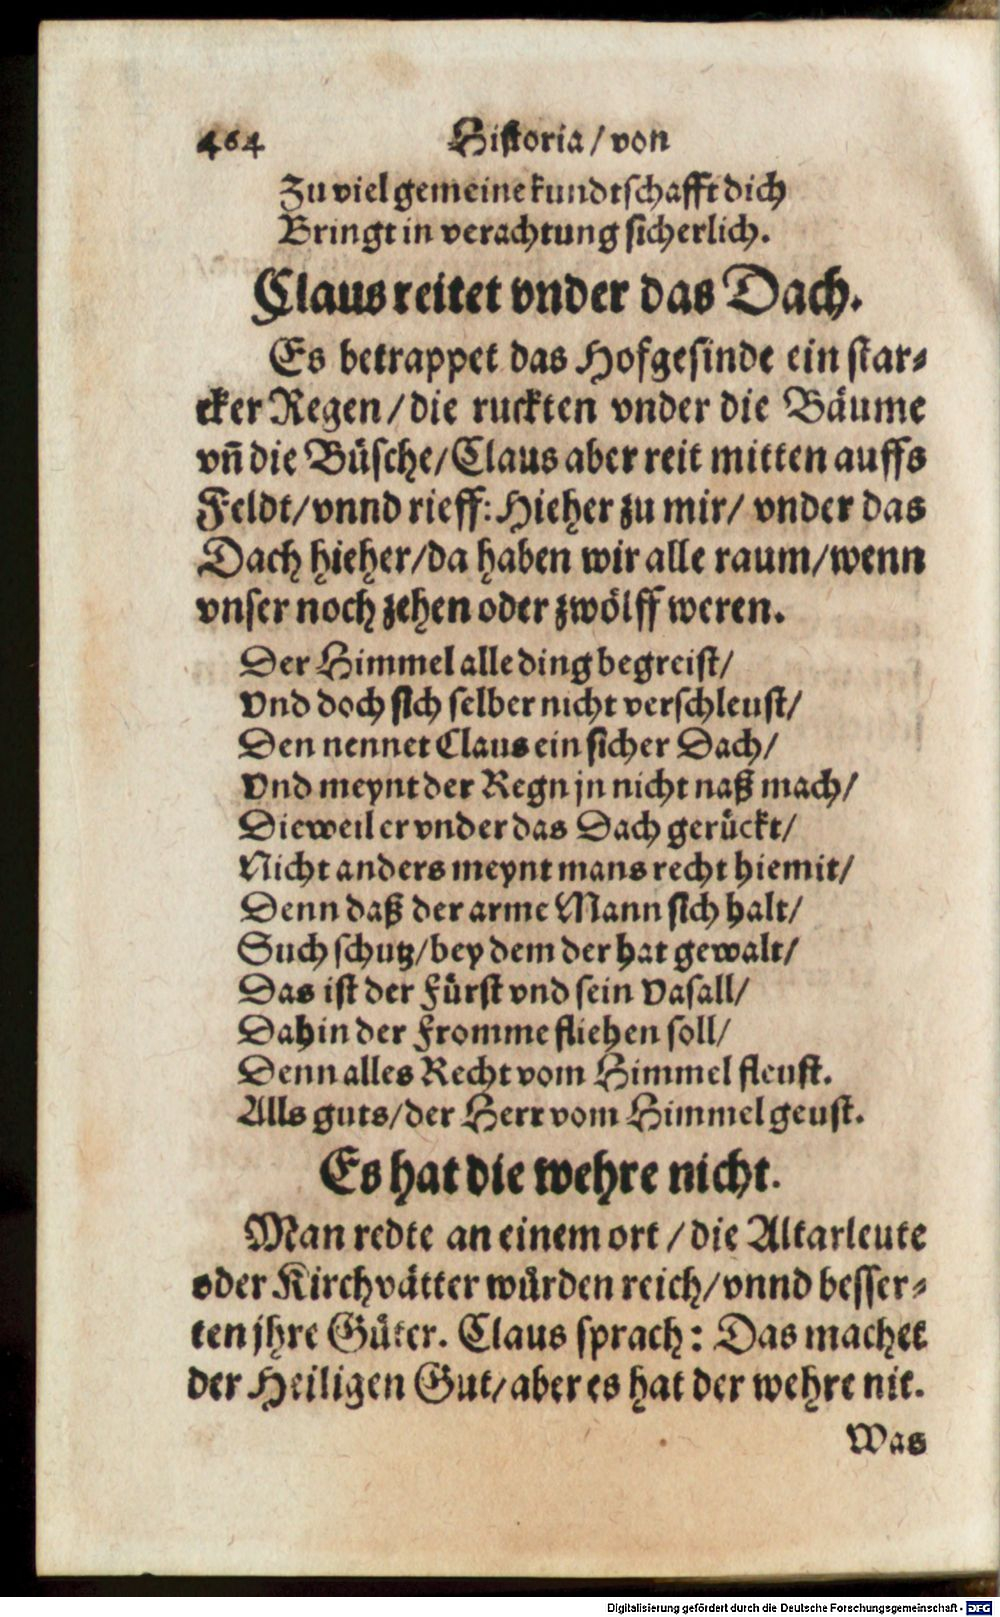 464 Historia / von
Zu viel gemeine kundtschafft dich
Bringt in verachtung sicherlich.
Claus reitet vnder das Dach.
Es betrappet das Hofgesinde ein star⸗
cker Regen / die ruckten vnder die Bäume
vñ die Büsche / Claus aber reit mitten auffs
Feldt / vnnd rieff: Hieher zu mir / vnder das
Dach hieher / da haben wir alle raum / wenn
vnser noch zehen oder zwölff weren.
Der Himmel alle ding begreist /
Vnd doch sich selber nicht verschleust /
Den nennet Claus ein sicher Dach /
Vnd meynt der Regn jn nicht naß mach /
Dieweil er vnder das Dach gerückt /
Nicht anders meynt mans recht hiemit /
Denn daß der arme Mann sich halt /
Such schutz / bey dem der hat gewalt /
Das ist der Fürst vnd sein Vasall /
Dahin der Fromme fliehen soll /
Denn alles Recht vom Himmel fleust.
Alls guts / der Herr vom Himmel geust.
Es hat die wehre nicht.
Man redte an einem ort / die Altarleute
oder Kirchvätter würden reich / vnnd besser⸗
ten jhre Güter. Claus sprach: Das machet
der Heiligen Gut / aber es hat der wehre nit.
Was
Digitalisierung gefördert durch die Deutsche Forschungsgemeinschaft - DFG